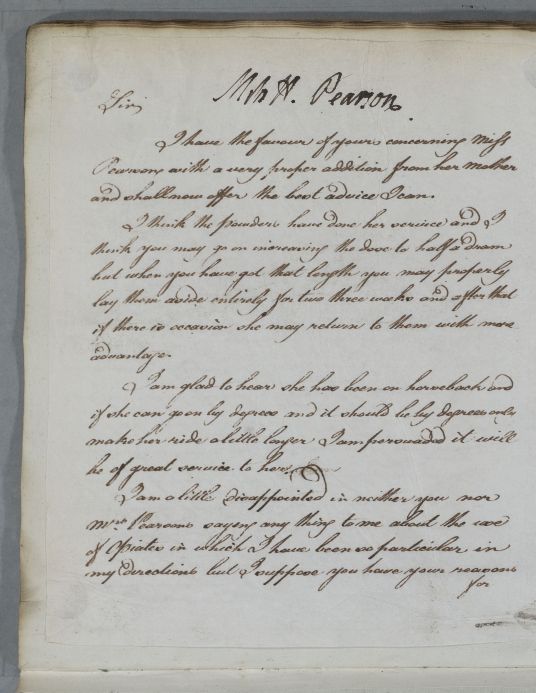 Mrs H. Pearson
Sir,
I have the favour of yours concerning Miss
Pearsons with a very proper addition from her Mother
and shall now offer the best advice I can.
I think the powders have done her service and I
think you may go on increasing the dose to half a dram
but when you have got that length you may properly
lay them aside entirely for two three weeks and after that
if there is occasion she may return to them with more
advantage.
I am glad to hear she has been on horseback and
if she can go on by degrees and it should be by degrees only
make her ride a little longer I am perswaded it will
be of great service to her.
I am a little disappointed in neither you nor
Mrs. Pearsons sayens any thing to me about the use
of Opiates in which I have been so particular in
my directions but I suppose you have your reasons
for